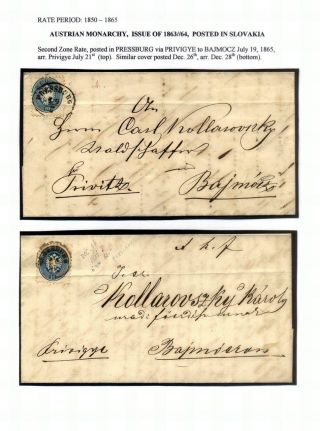 RATE PERIOD: 1850 – 1865
AUSTRIAN MONARCHY, ISSUE OF 1863/64, POSTED IN SLOVAKIA
Second Zone Rate, posted in PRESSBURG via PRIVIGYE to BAJMOCZ July 19, 1865,
arr. Privigye July 21st (top). Similar cover posted Dec. 26th, arr. Dec. 28th (bottom).
PRESSBURG
An
Herrn Carl Kollarovszky
Waldschaffer
Privitz Bajmócz
Kollarovszky Károly
Privigye Bajmóczon